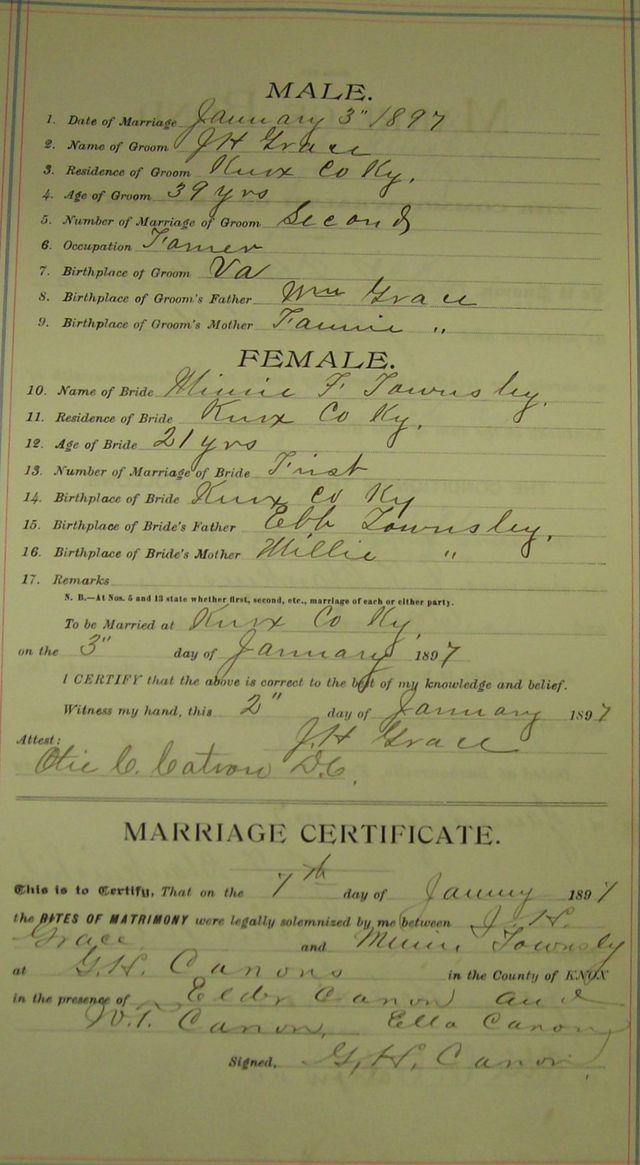 MALE.
1. Date of Marriage January 3" 1897
2. Name of Groom JH Grace
3. Residence of Groom Knox Co Ky.
4. Age of Groom 39 yrs
5. Number of Marriage of Groom Second
6. Occupation Farmer
7. Birthplace of Groom Va
8. Birthplace of Groom's Father Wm Grace
9. Birthplace of Groom's Mother Fannie "
FEMALE.
10. Name of Bride Minnie F Townsley,
11. Residence of Bride Knox Co Ky,
12. Age of Bride 21 yrs
13. Number of Marriage of Bride First
14. Birthplace of Bride Knox Co Ky
15. Birthplace of Bride's Father Ebb Townsley,
16. Birthplace of Bride's Mother Millie "
17. Remarks
N. B.—At Nos. 5 and 13 state whether first, second, etc., marriage of each or either party.
To be Married at Knox Co Ky,
on the 3" day of January 1897
I CERTIFY that the above is correct to the best of my knowledge and belief.
Witness my hand, this 2" day of January 1897
J.H Grace
Attest:
Otie C. Catron D.C.
MARRIAGE CERTIFICATE.
This is to Certify, That on the 7th day of January 1897
the RITES OF MATRIMONY were legally solemnized by me between J. H.
Grace and Minnie Townsly
at G.H. Canons in the County of KNOX
in the presence of Elder Canon and
W.T. Canon, Ella Canon
Signed, G.H. Canon